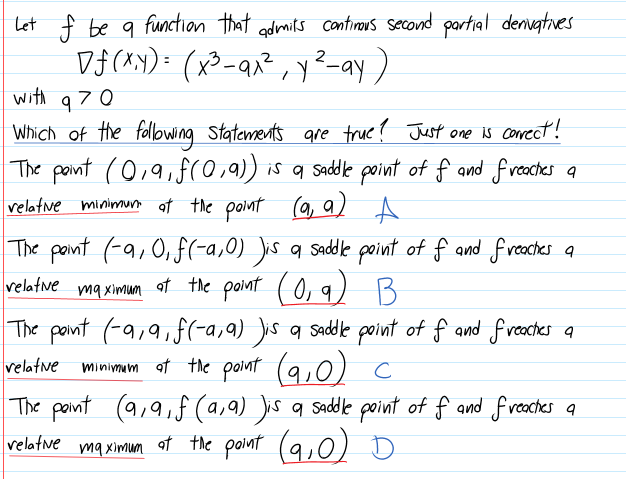 Let f be a function that admits continous second partial derivatives
∇f(x,y) = (x³-ax², y²-ay)
with a > 0
Which of the following statements are true? Just one is correct!
The point (0,a,f(0,a)) is a saddle point of f and f reaches a
relative minimum at the point (a,a) A
The point (-a,0,f(-a,0)) is a saddle point of f and f reaches a
relative maximum at the point (0,a) B
The point (-a,a,f(-a,a)) is a saddle point of f and f reaches a
relative minimum at the point (a,0) C
The point (a,a,f(a,a)) is a saddle point of f and f reaches a
relative maximum at the point (a,0) D